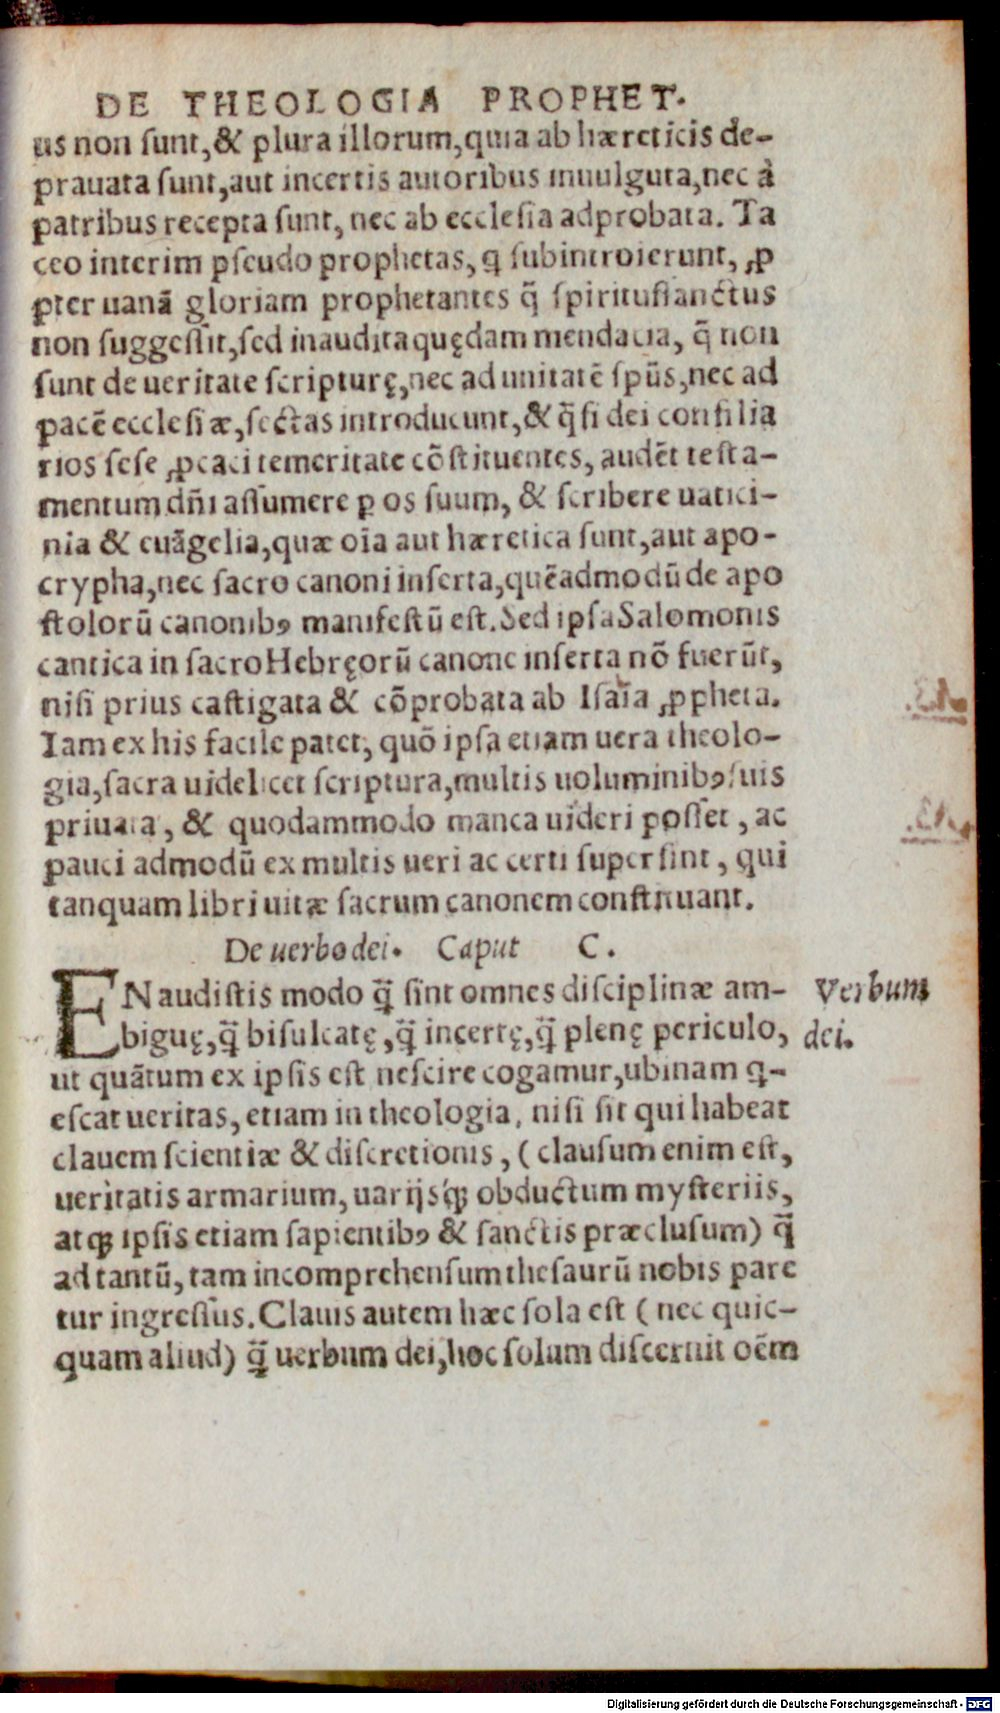 DE THEOLOGIA PROPHET.
us non ſunt,& plura illorum,quia ab hæreticis de-
prauata ſunt,aut incertis autoribus inuulgata,nec à
patribus recepta ſunt, nec ab eccleſia adprobata. Ta
ceo interim pſeudo prophetas, ꝗ ſubintroierunt, ꝓ
pter uanā gloriam prophetantes q̃ ſpirituſſanctus
non ſuggeſſit,ſed inaudita quędam mendacia, q̃ non
ſunt de ueritate ſcripturę,nec ad unitatē ſpūs,nec ad
pacē eccleſiæ,ſectas introducunt,& q̃ſi dei conſilia
rios ſeſe ꝓcaci temeritate cōſtituentes, audēt teſta-
mentum dñi aſſumere ꝑ os ſuum, & ſcribere uatici-
nia & euāgelia,quæ oīa aut hæretica ſunt,aut apo-
crypha,nec ſacro canoni inſerta,quēadmodū de apo
ſtolorū canonibꝰ manifeſtū eſt.Sed ipſa Salomonis
cantica in ſacro Hebręorū canone inſerta nō fuerūt,
niſi prius caſtigata & cōprobata ab Iſaīa ꝓpheta.
Iam ex his facile patet, quō ipſa etiam uera theolo-
gia,ſacra uidelicet ſcriptura,multis uoluminibꝰ ſuis
priuata, & quodammodo manca uideri poſſet, ac
pauci admodū ex multis ueri ac certi ſuperſint, qui
tanquam libri uitæ ſacrum canonem conſtituant.
De uerbo dei. Caput C.
EN audiſtis modo q̃ ſint omnes diſciplinæ am-
biguę,q̃ biſulcatę,q̃ incertę,q̃ plenę periculo,
ut quātum ex ipſis eſt neſcire cogamur,ubinam ꝗ-
eſcat ueritas, etiam in theologia, niſi ſit qui habeat
clauem ſcientiæ & diſcretionis, (clauſum enim eſt,
ueritatis armarium, uarijsq́ꝫ obductum myſteriis,
atqꝫ ipſis etiam ſapientibꝰ & ſanctis præcluſum) q̃
ad tantū, tam incomprehenſum theſaurū nobis pare
tur ingreſſus. Clauis autem hæc ſola eſt (nec quic-
quam aliud) q̃ uerbum dei,hoc ſolum diſcernit oēm
Verbum
dei.
Digitalisierung gefördert durch die Deutsche Forschungsgemeinschaft - DFG